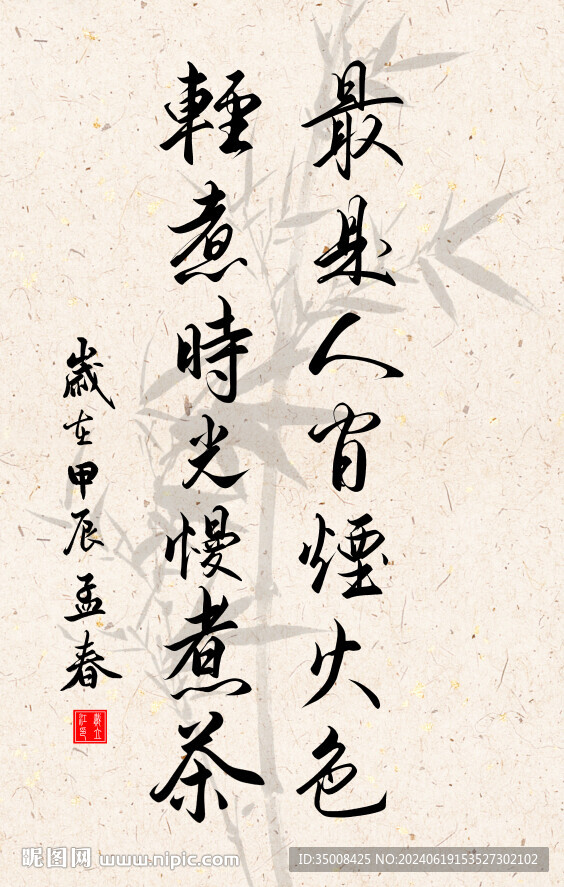 最是人间煙火色
輕煮時光慢煮茶
歲在甲辰孟春
昵图网 www.nipic.com
ID:35008425 NO:20240619153527302102